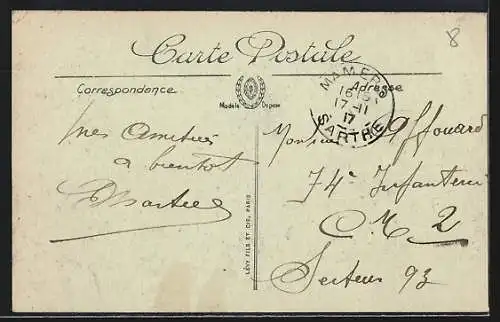 8
Carte Postale
Correspondance
Adresse
Modèle Déposé
MAMERS
17-11
17
SARTHE
mes amitiés
à bientot
Monsieur
74e Infanterie
CM 2
Secteur 93
LÉVY FILS ET CIE, PARIS